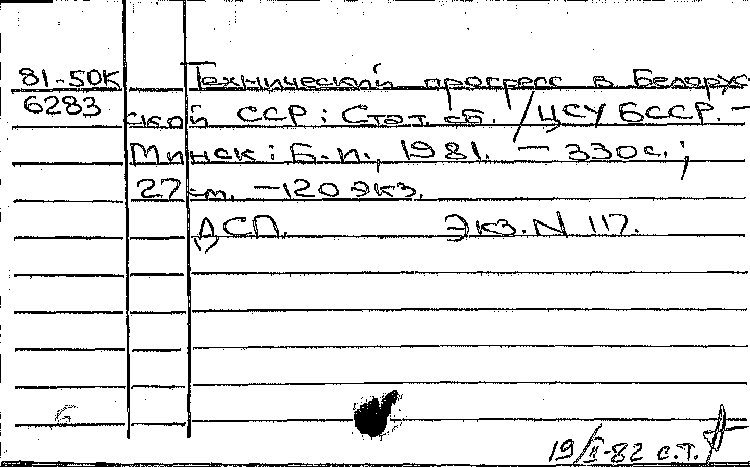 81-50К Технический прогресс в Белорус-
6283 ской ССР: Стат. сб. / ЦСУ БССР. –
Минск: Б.и., 1981. – 330с.;
27 см. – 120 экз.
ДСП. Экз. N 117.
6
19/II-82 с.т.